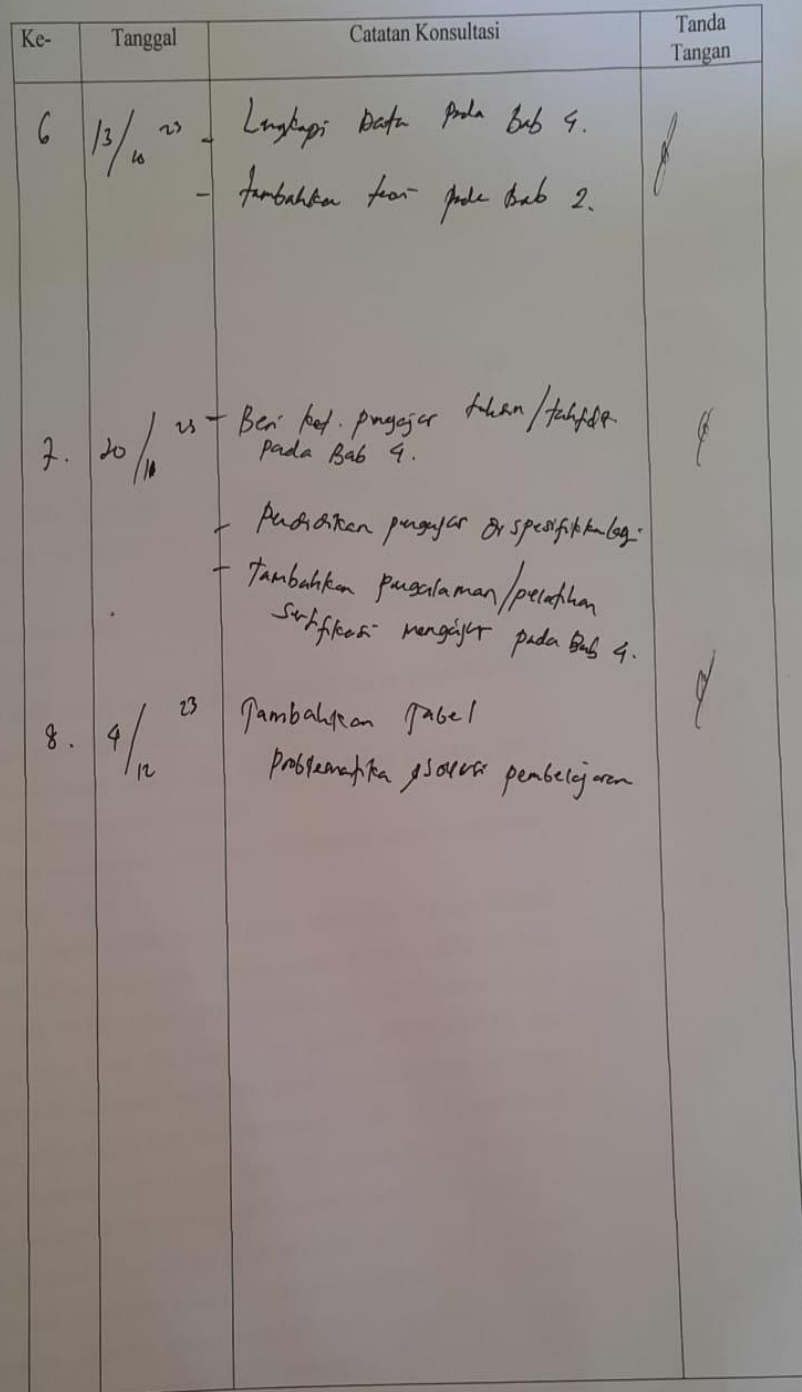 Ke- Tanggal Catatan Konsultasi Tanda Tangan
6 13/10 23 - Lengkapi Data pada Bab 4.
- tambahkan teori pada Bab 2.
7. 20/10 23 - Beri ket. pengajar /tahfidz
pada Bab 4.
- Pendidikan pengajar di spesifikkan lagi.
- Tambahkan pengalaman/pelatihan
sertifikasi mengajar pada Bab 4.
8. 4/12 23 Tambahkan Tabel
problematika solusi pembelajaran